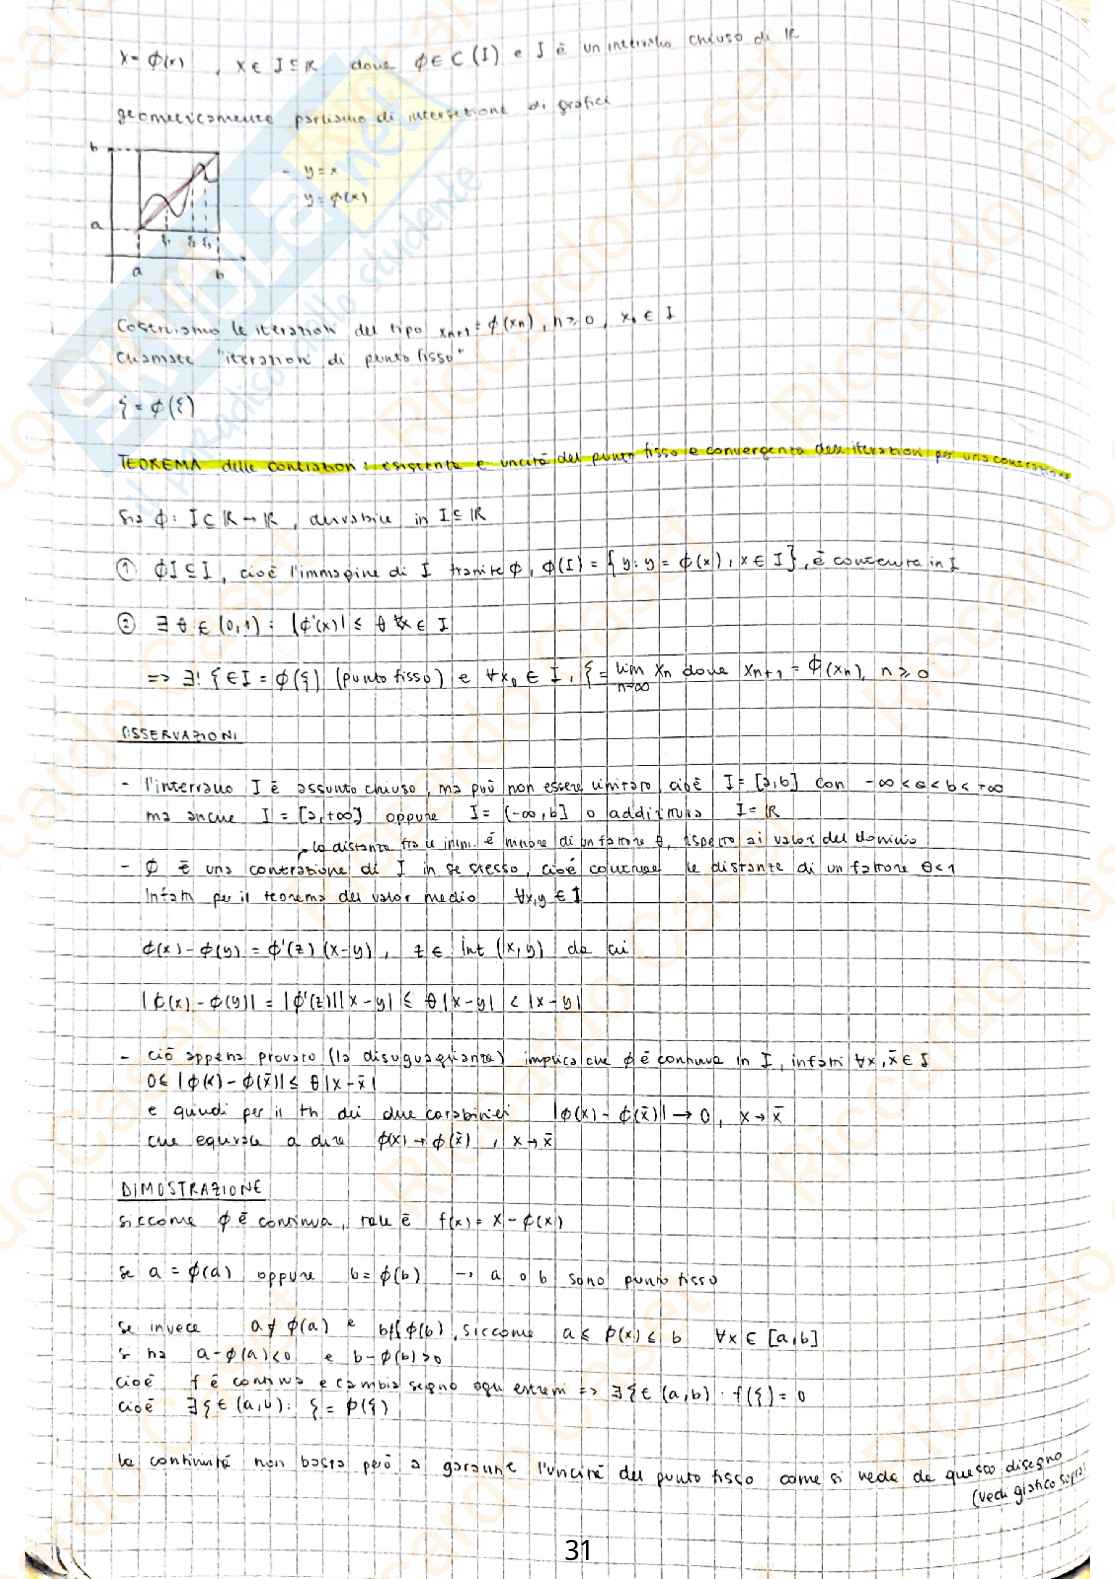 x = ϕ(x) , x ∈ I ⊆ ℝ dove ϕ ∈ C(I) e I è un intervallo chiuso di ℝ
geometricamente parliamo di intersezione di grafici
b
- y = x
y = ϕ(x)
a
ξ₁ ξ₂ ξ₃
a b
Costruiamo le iterazioni del tipo xₙ₊₁ = ϕ(xₙ), n ≥ 0, x₀ ∈ I
chiamate "iterazioni di punto fisso"
ξ = ϕ(ξ)
TEOREMA delle contrazioni: esistenza e unicità del punto fisso e convergenza delle iterazioni per una contrazione
Sia ϕ: I ⊆ ℝ → ℝ, derivabile in I ⊆ ℝ
① ϕI ⊆ I, cioè l'immagine di I tramite ϕ, ϕ(I) = { y: y = ϕ(x), x ∈ I }, è contenuta in I
② ∃ θ ∈ (0,1) : |ϕ'(x)| ≤ θ ∀x ∈ I
=> ∃! ξ ∈ I = ϕ(ξ) (punto fisso) e ∀x₀ ∈ I, ξ = lim xₙ dove xₙ₊₁ = ϕ(xₙ), n ≥ 0
n→∞
OSSERVAZIONI
- l'intervallo I è assunto chiuso, ma può non essere limitato, cioè I = [a,b] con -∞ < a < b < +∞
ma anche I = [a,+∞) oppure I = (-∞,b] o addirittura I = ℝ
la distanza fra le imm. è minore di un fattore θ, rispetto ai valori del dominio
- ϕ è una contrazione di I in se stesso, cioè le distanze di un fattore θ<1
Infatti per il teorema del valor medio ∀x,y ∈ I
ϕ(x) - ϕ(y) = ϕ'(z) (x-y), z ∈ int (x,y) da cui
|ϕ(x) - ϕ(y)| = |ϕ'(z)||x-y| ≤ θ|x-y| < |x-y|
- ciò appena provato (la disuguaglianza) implica che ϕ è continua in I, infatti ∀x, x̄ ∈ I
0 ≤ |ϕ(x) - ϕ(x̄)| ≤ θ|x - x̄|
e quindi per il th dei due carabinieri |ϕ(x) - ϕ(x̄)| → 0, x → x̄
che equivale a dire ϕ(x) → ϕ(x̄) , x → x̄
DIMOSTRAZIONE
siccome ϕ è continua, tale è f(x) = x - ϕ(x)
se a = ϕ(a) oppure b = ϕ(b) → a o b sono punto fisso
se invece a ≠ ϕ(a) e b ≠ ϕ(b), siccome a ≤ ϕ(x) ≤ b ∀x ∈ [a,b]
si ha a - ϕ(a) < 0 e b - ϕ(b) > 0
cioè f è continua e cambia segno agli estremi => ∃ξ ∈ (a,b) : f(ξ) = 0
cioè ∃ξ ∈ (a,b): ξ = ϕ(ξ)
la continuità non basta però a garantire l'unicità del punto fisso come si vede da questo disegno
(vedi grafico sopra)
31